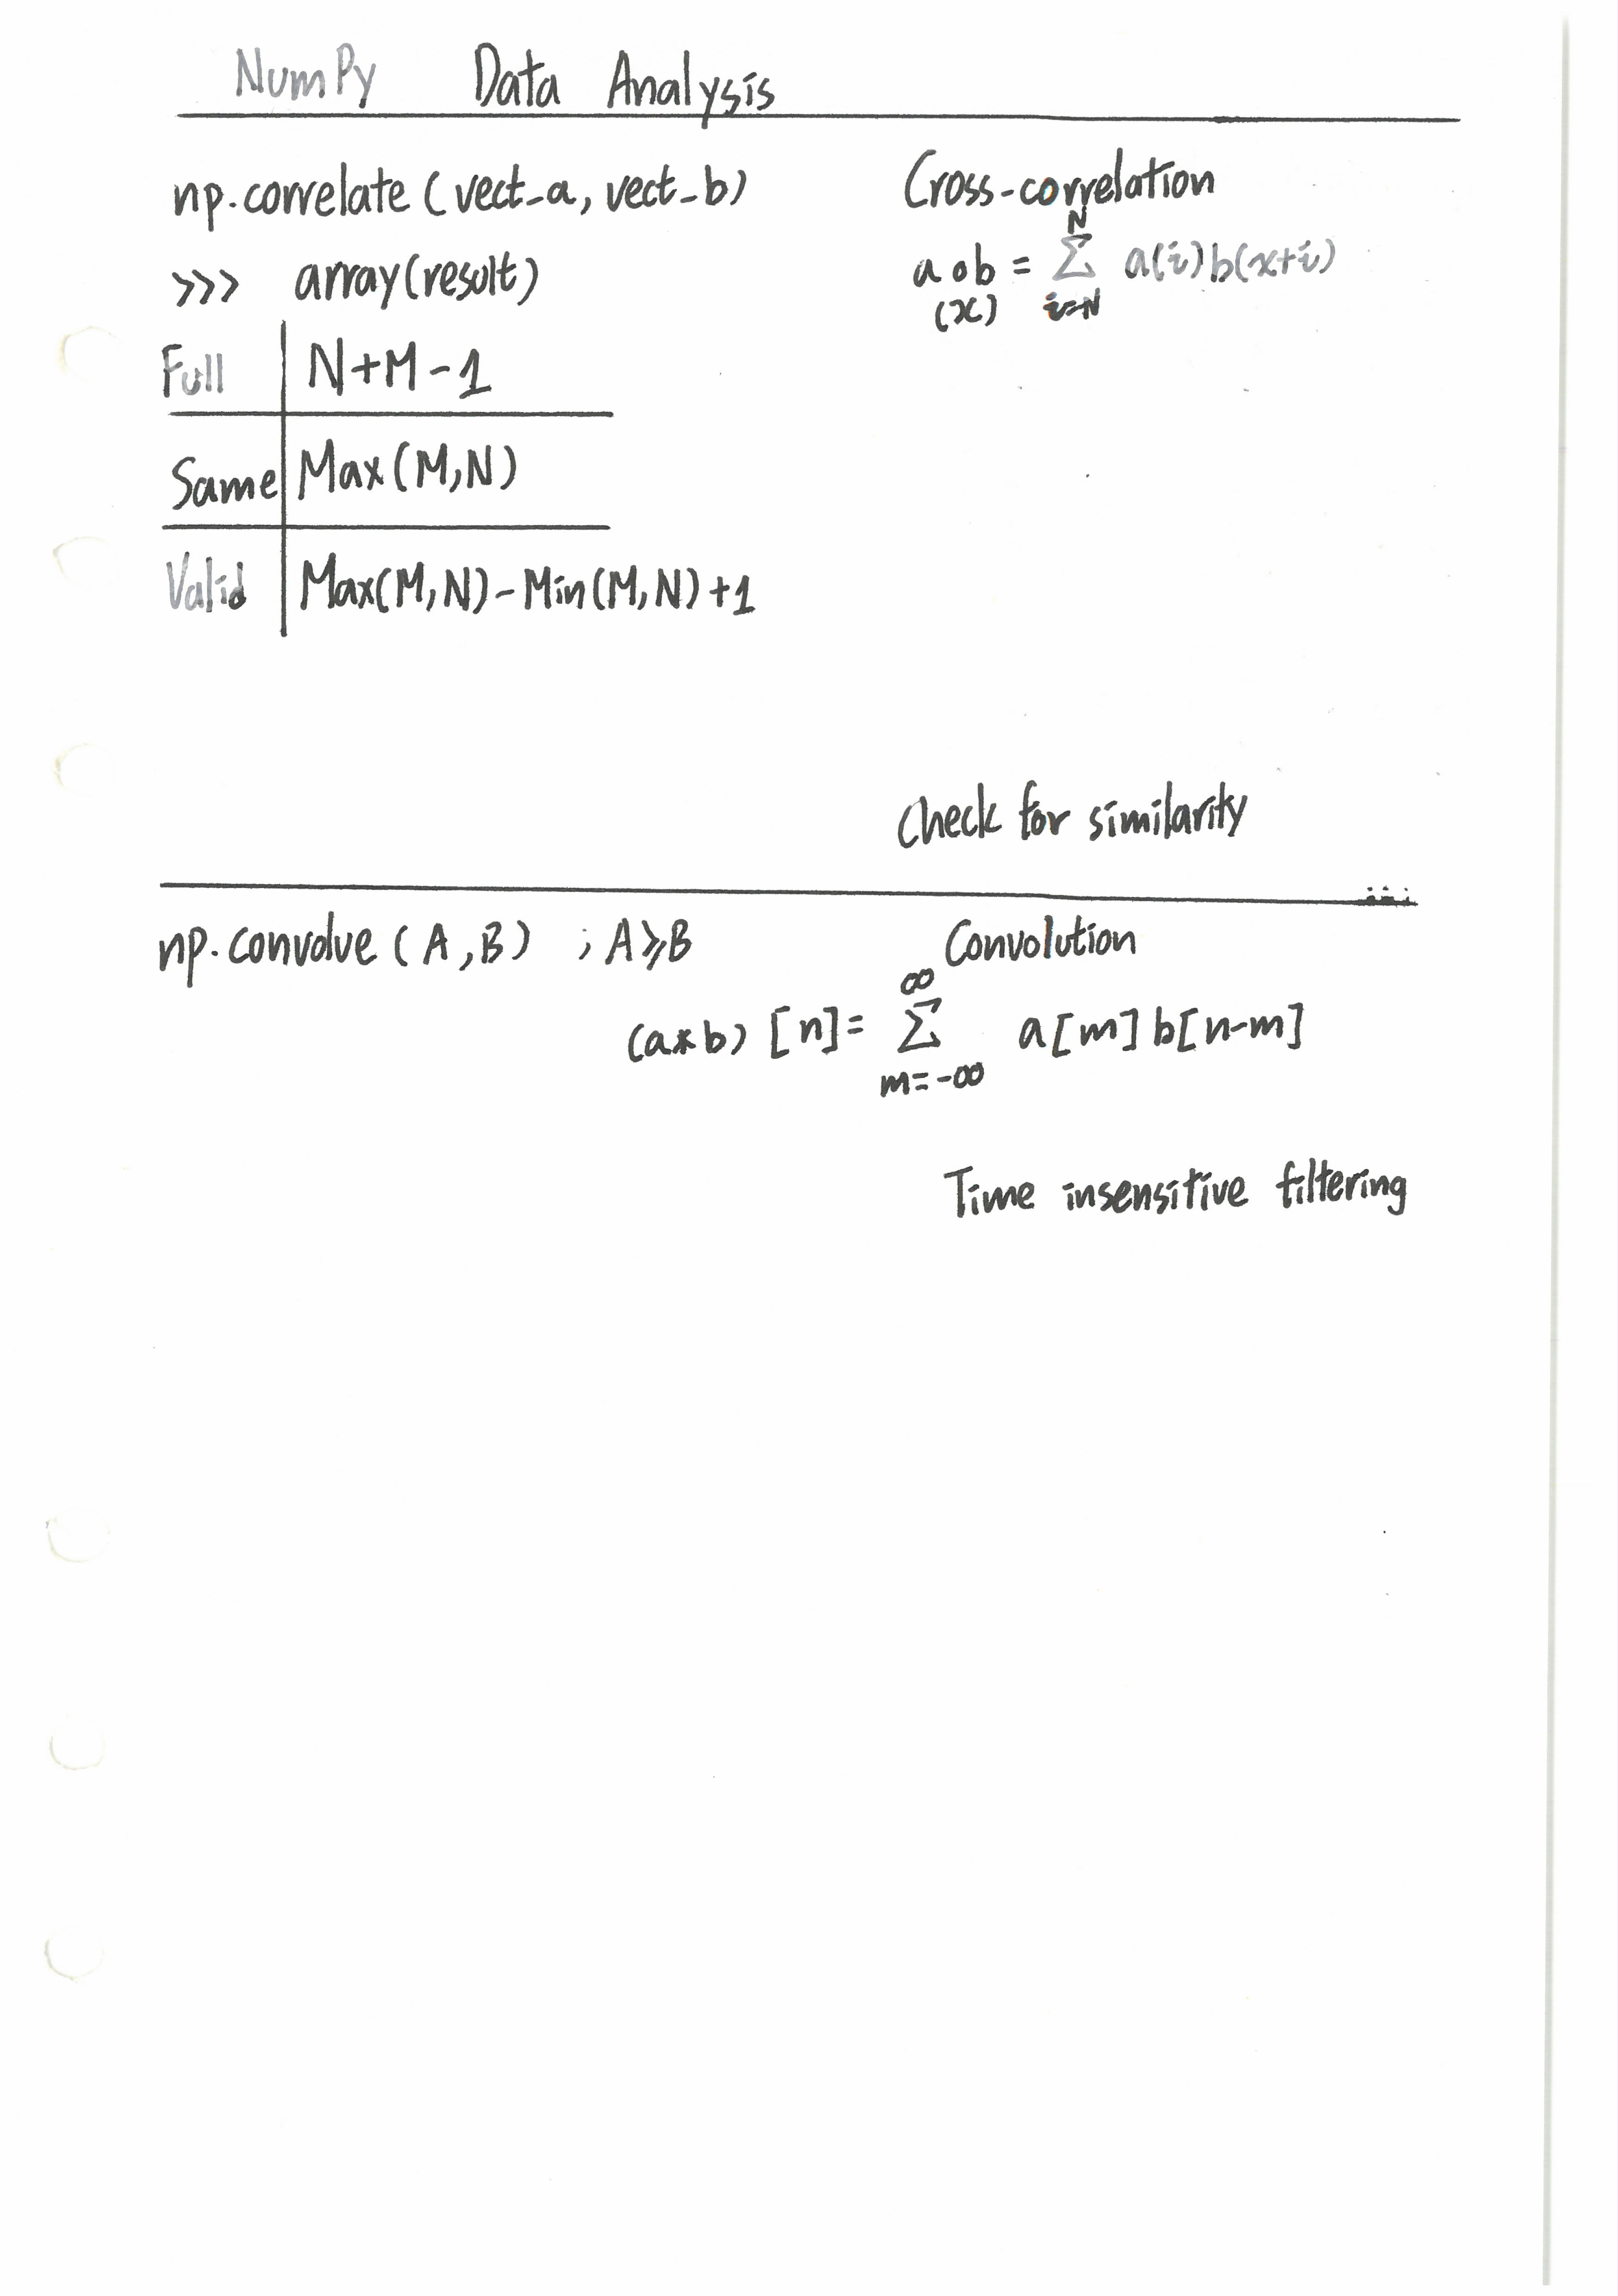 NumPy Data Analysis
np.correlate (vect_a, vect_b)
>>> array(result)
Full N+M-1
Same Max(M,N)
Valid Max(M,N)-Min(M,N)+1
Cross-correlation
N
a o b = Σ a(i)b(x+i)
(x) i=N
Check for similarity
np.convolve (A,B) ; A⩾B
Convolution
∞
(a*b) [n]= Σ a[m]b[n-m]
m=-∞
Time insensitive filtering